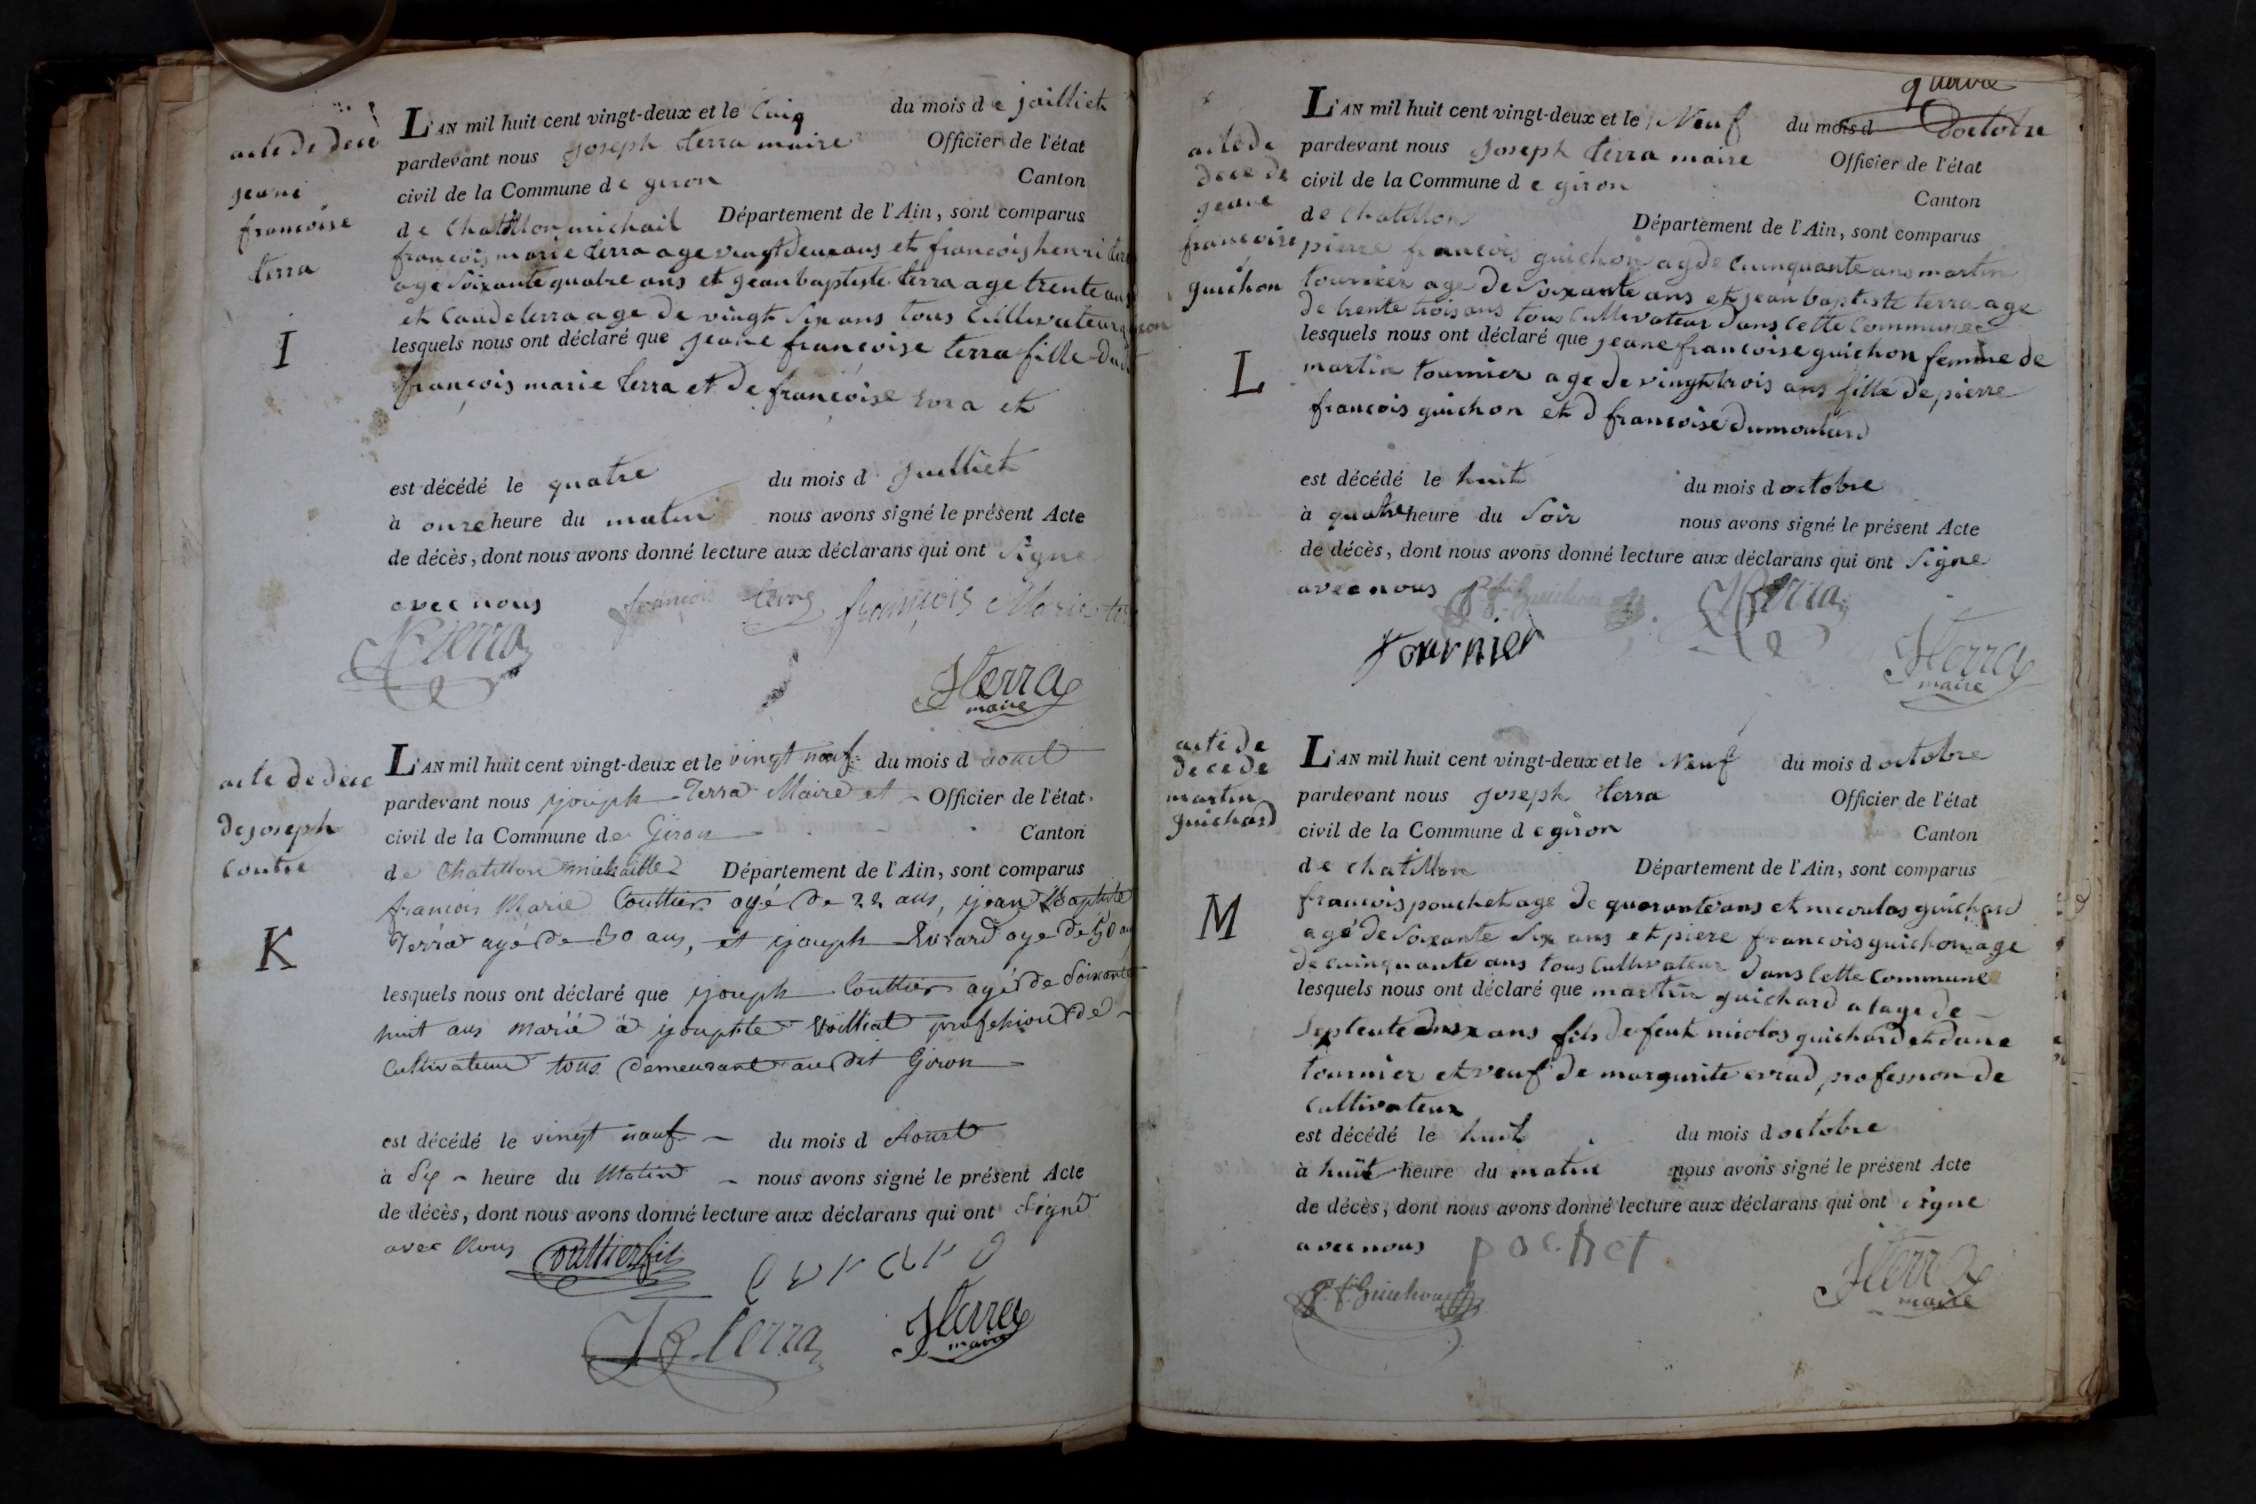 acte de dece
jeane
francoise
terra
I
L'AN mil huit cent vingt-deux et le cinq du mois de jailliet
pardevant nous joseph terra maire Officier de l'état
civil de la Commune de giron Canton
de Chatillon michail Département de l'Ain, sont comparus
francois marie terra age vingt deux ans et francois henri
age soixante quatre ans et jean baptiste terra age trente ans
et Caude terra age de vingt six ans tous Cultivateur
lesquels nous ont déclaré que jeane françoise terra fille du
françois marie terra et de françoise et
est décédé le quatre du mois d juilliet
à onze heure du matin nous avons signé le présent Acte
de décès, dont nous avons donné lecture aux déclarans qui ont signe
avec nous françois terra françois Marie
terra
JTerra
maire
acte de dece
de joseph
Coutie
K
L'AN mil huit cent vingt-deux et le vingt neuf du mois d aoust
pardevant nous joseph Terra Maire et Officier de l'état
civil de la Commune de Giron Canton
de Chatillon michaille Département de l'Ain, sont comparus
francois Marie Couttier agé de 22 ans, jean Baptiste
Terra agé de 30 ans, et joseph Evrard age de 50
lesquels nous ont déclaré que joseph Couttier agé de soixante
huit ans marié à profession de
Cultivateur tous demeurant au dit Giron
est décédé le vingt neuf du mois d Aoust
à Six heure du Matin nous avons signé le présent Acte
de décès, dont nous avons donné lecture aux déclarans qui ont signé
avec Nous Couttier fils evrard
JB terra JTerra
maire
acte de
dece de
jeane
francoise
guichon
L
L'AN mil huit cent vingt-deux et le Neuf du mois d Doctobre
pardevant nous joseph terra maire Officier de l'état
civil de la Commune de giron Canton
de Chatillon Département de l'Ain, sont comparus
pierre francois guichon agde cuinquante ans martin
tournier age de soixante ans et jean baptiste terra age
de trente trois ans tous Cultivateur dans Cette Commune
lesquels nous ont déclaré que jeane francoise guichon femme de
martin tournier age de vingt trois ans fille de pierre
francois guichon et d francoise dumoulard
est décédé le huit du mois d octobre
à quatre heure du soir nous avons signé le présent Acte
de décès, dont nous avons donné lecture aux déclarans qui ont signe
avec nous Guichon terra
Tournier JTerra
maire
acte de
dece de
martin
guichard
M
L'AN mil huit cent vingt-deux et le Neuf du mois d octobre
pardevant nous joseph terra Officier de l'état
civil de la Commune de giron Canton
de chatillon Département de l'Ain, sont comparus
francois pouchet age de quarante ans et nicoulas guichard
agé de soixante six ans et piere francois guichon age
de cuinquante ans tous Cultivateur dans Cette Commune
lesquels nous ont déclaré que martin guichard a lage de
ans fils de feut nicolos guichard et dane
tournier et veuf de margurite evrad profession de
Cultivateur
est décédé le huit du mois d octobre
à huit heure du matin nous avons signé le présent Acte
de décès, dont nous avons donné lecture aux déclarans qui ont signe
avec nous pochet
P. f. Guichon JTerra
maire